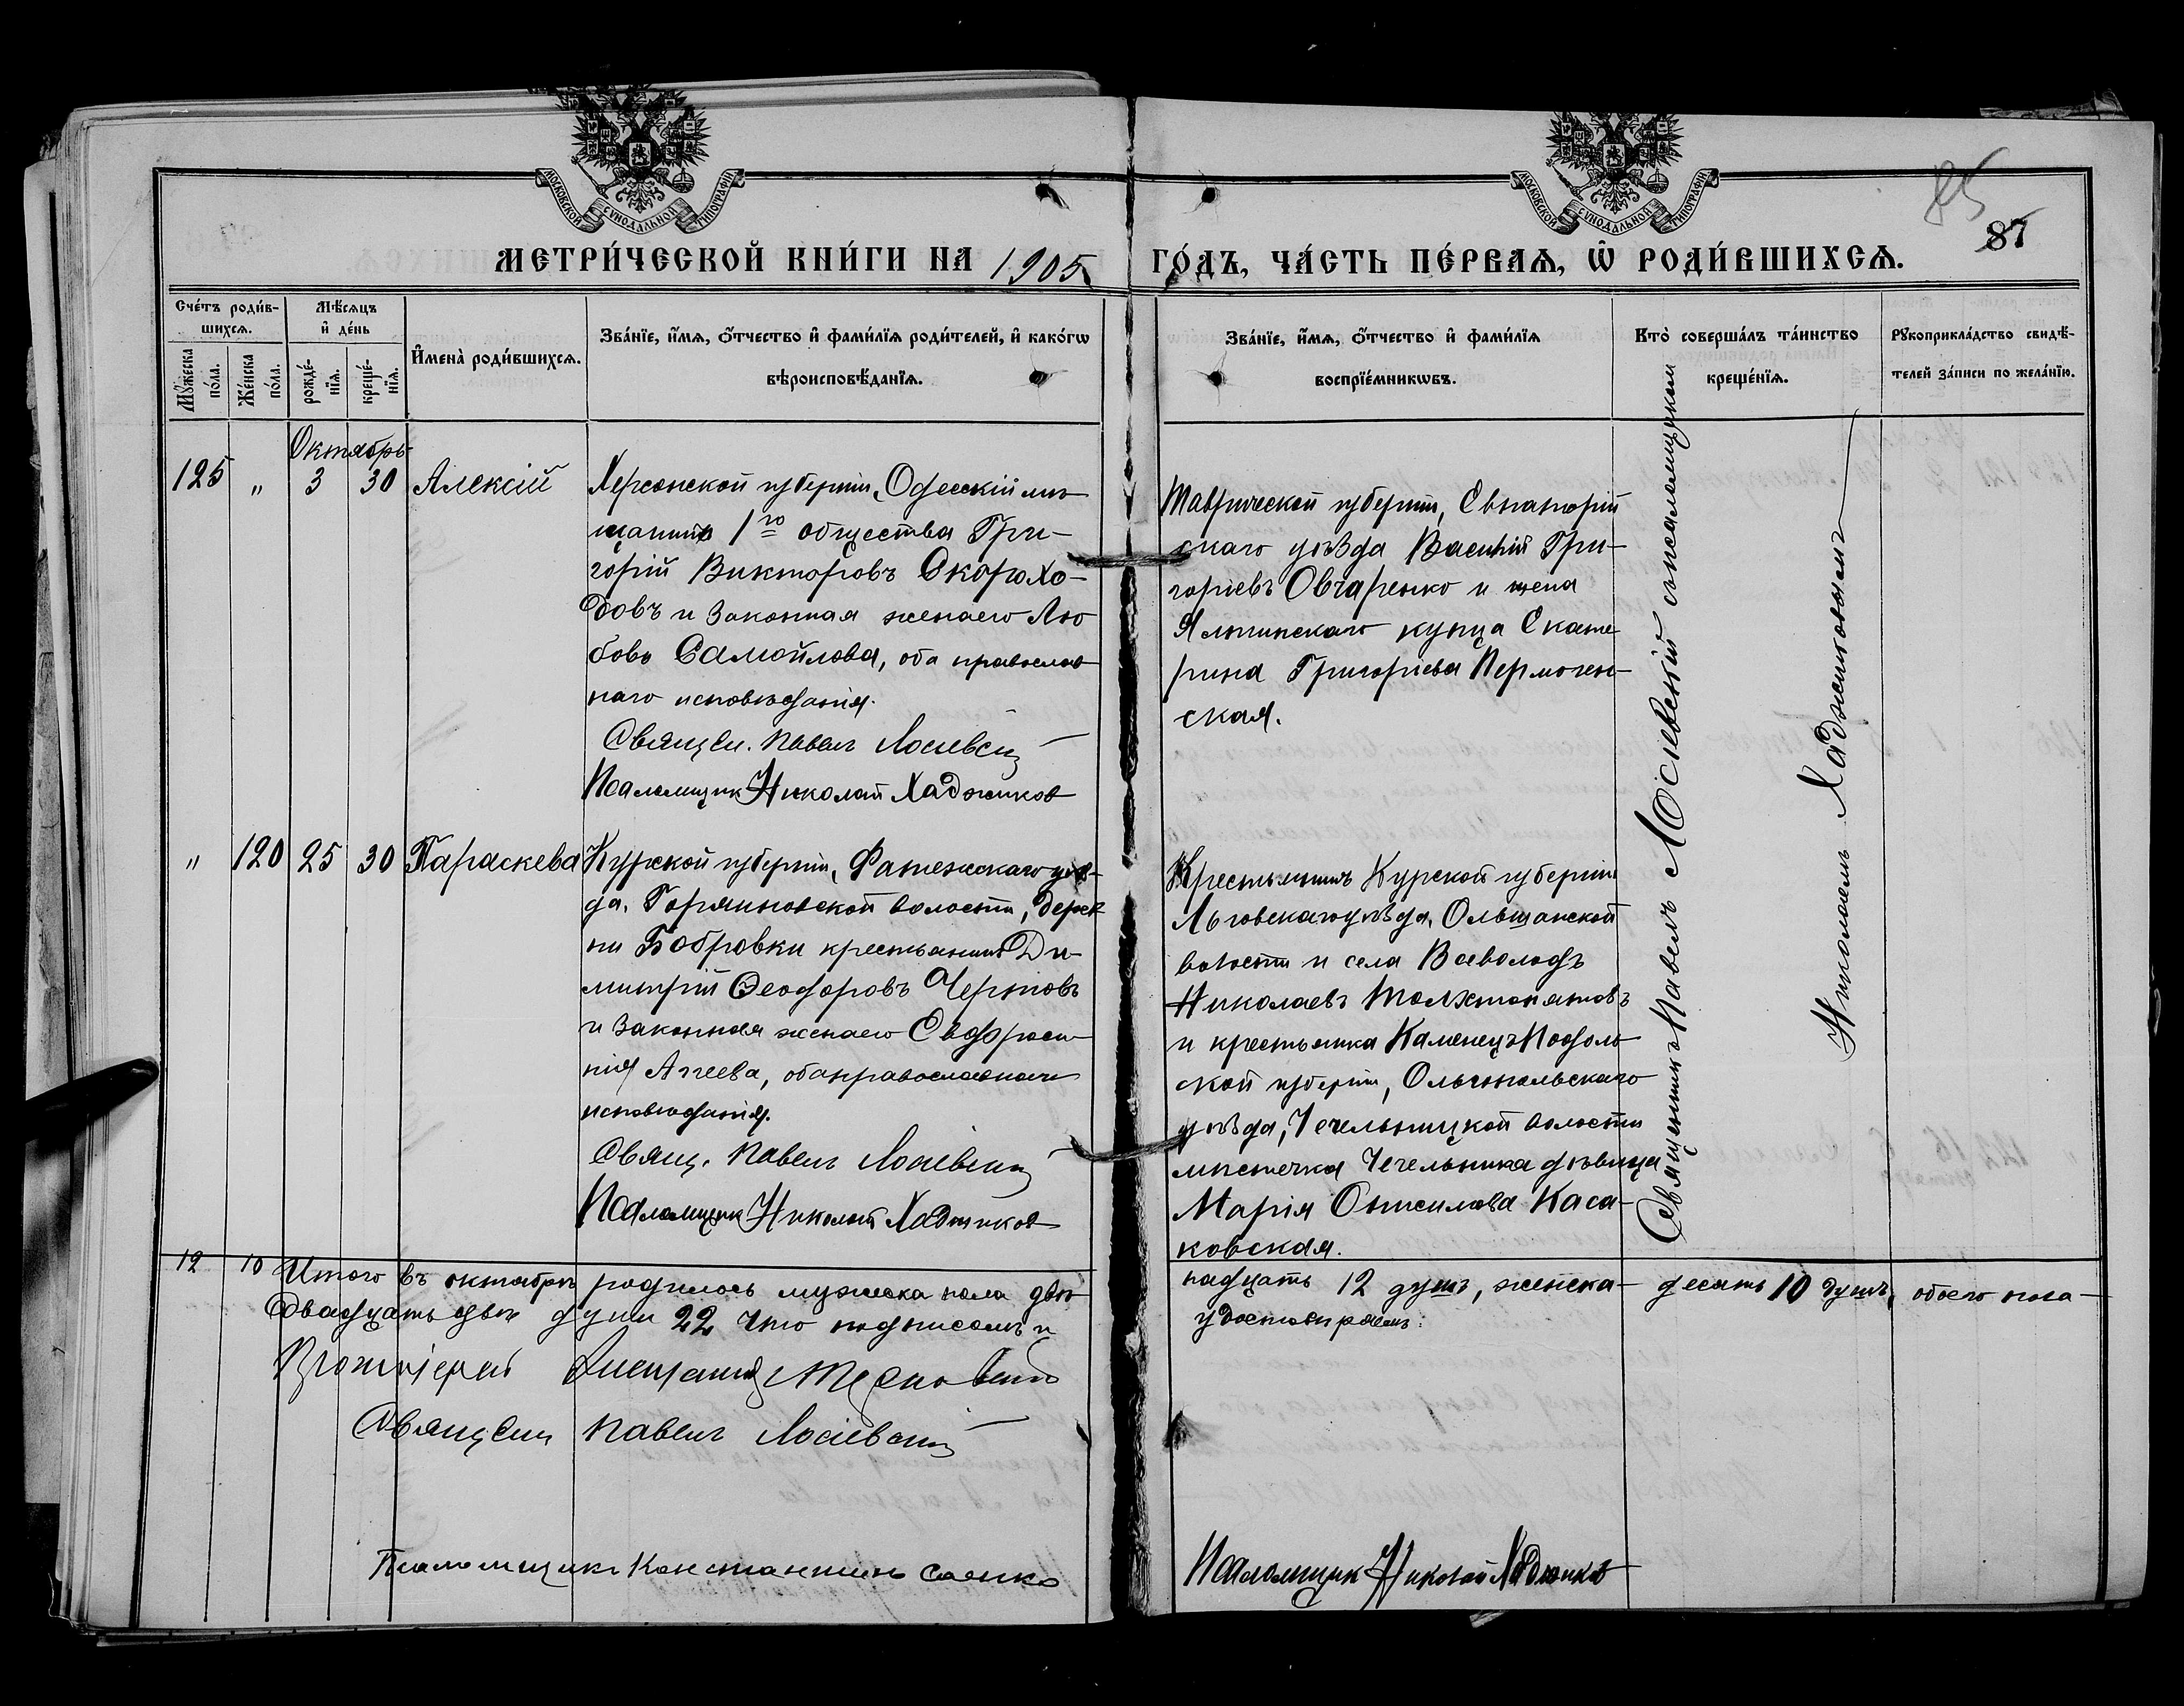 МОСКОВСКОЙ СѴНОДАЛЬНОЙ ТИПОГРАФІИ
МОСКОВСКОЙ СѴНОДАЛЬНОЙ ТИПОГРАФІИ
85
87
МЕТРИ́ЧЕСКОЙ КНИ́ГИ НА 1905 ГО́ДЪ, ЧА́СТЬ ПЕ́РВАѦ, Ѡ҆ РОДИ́ВШИХСѦ.
Сче́тъ роди́в-
шихсѧ.
Мꙋ́жеска
по́ла.
Же́нска
по́ла.
Мѣ́сѧцъ
и҆ де́нь
рожде́-
нїѧ.
креще́-
нїѧ.
И҆мена̀ роди́вшихсѧ.
Зва́нїе, и҆́мѧ, ѻ҆́тчество и҆ фами́лїѧ роди́телей, и҆ како́гѡ
вѣроисповѣ́данїѧ.
Зва́нїе, и҆́мѧ, ѻ҆́тчество и҆ фами́лїѧ
воспрїе́мникѡвъ.
Кто̀ соверша́лъ та́инство
креще́нїѧ.
Рꙋкоприкла́дство свидѣ́-
телей за́писи по жела́нїю.
Октябрь
125 " 3 30 Алексій
Херсонской губерніи, Одесскій мѣ-
щанинъ 1го общества Гри-
горій Викторовъ Скорохо-
довъ и законная жена его Лю
бовь Самойлова, оба православ
наго исповѣданія.
Священ. Павелъ Лосіевскій
Псаломщик Николай Хаджиков
Таврической губерніи, Евпаторій
скаго уѣзда Василій Гри-
горіевъ Овчаренко и жена
Ялтинскаго купца Екате
рина Григоріева Пермоген-
ская.
" 120 25 30 Параскева
Курской губерніи, Фатежскаго уѣз-
да, Горяиновской волости, дерев
ни Бобровки крестьянинъ Ди-
митрій Ѳеодоровъ Черновъ
и законная жена его Евфроси-
нія Агеева, оба православнаго
исповѣданія.
Свящ. Павелъ Лосіевскій
Псаломщик Николай Хаджиков
Крестьянинъ Курской губерніи
Льговскаго уѣзда, Ольшанской
волости и села Всеволодъ
Николаевъ Толстопятовъ
и крестьянка Каменецъ Подоль
ской губерніи, Ольгопольскаго
уѣзда, Чечельницкой волости
мѣстечка Чечельника дѣвица
Марія Онисимова Каса-
ковская.
Священникъ Павелъ Лосіевскій съ псаломщикомъ
Николаемъ Хаджиковымъ
12 10 Итого въ октябрѣ родилось мужеска пола двѣ
надцать 12 душъ, женска - десять 10 душъ, обоего пола -
двадцать двѣ души 22 что подписомъ и
удостовѣряемъ:
Протоіерей Александръ Терновскій
Священ Павелъ Лосіевскій
Псаломщикъ Константинъ Саенко
Псаломщик Николай Хаджиков